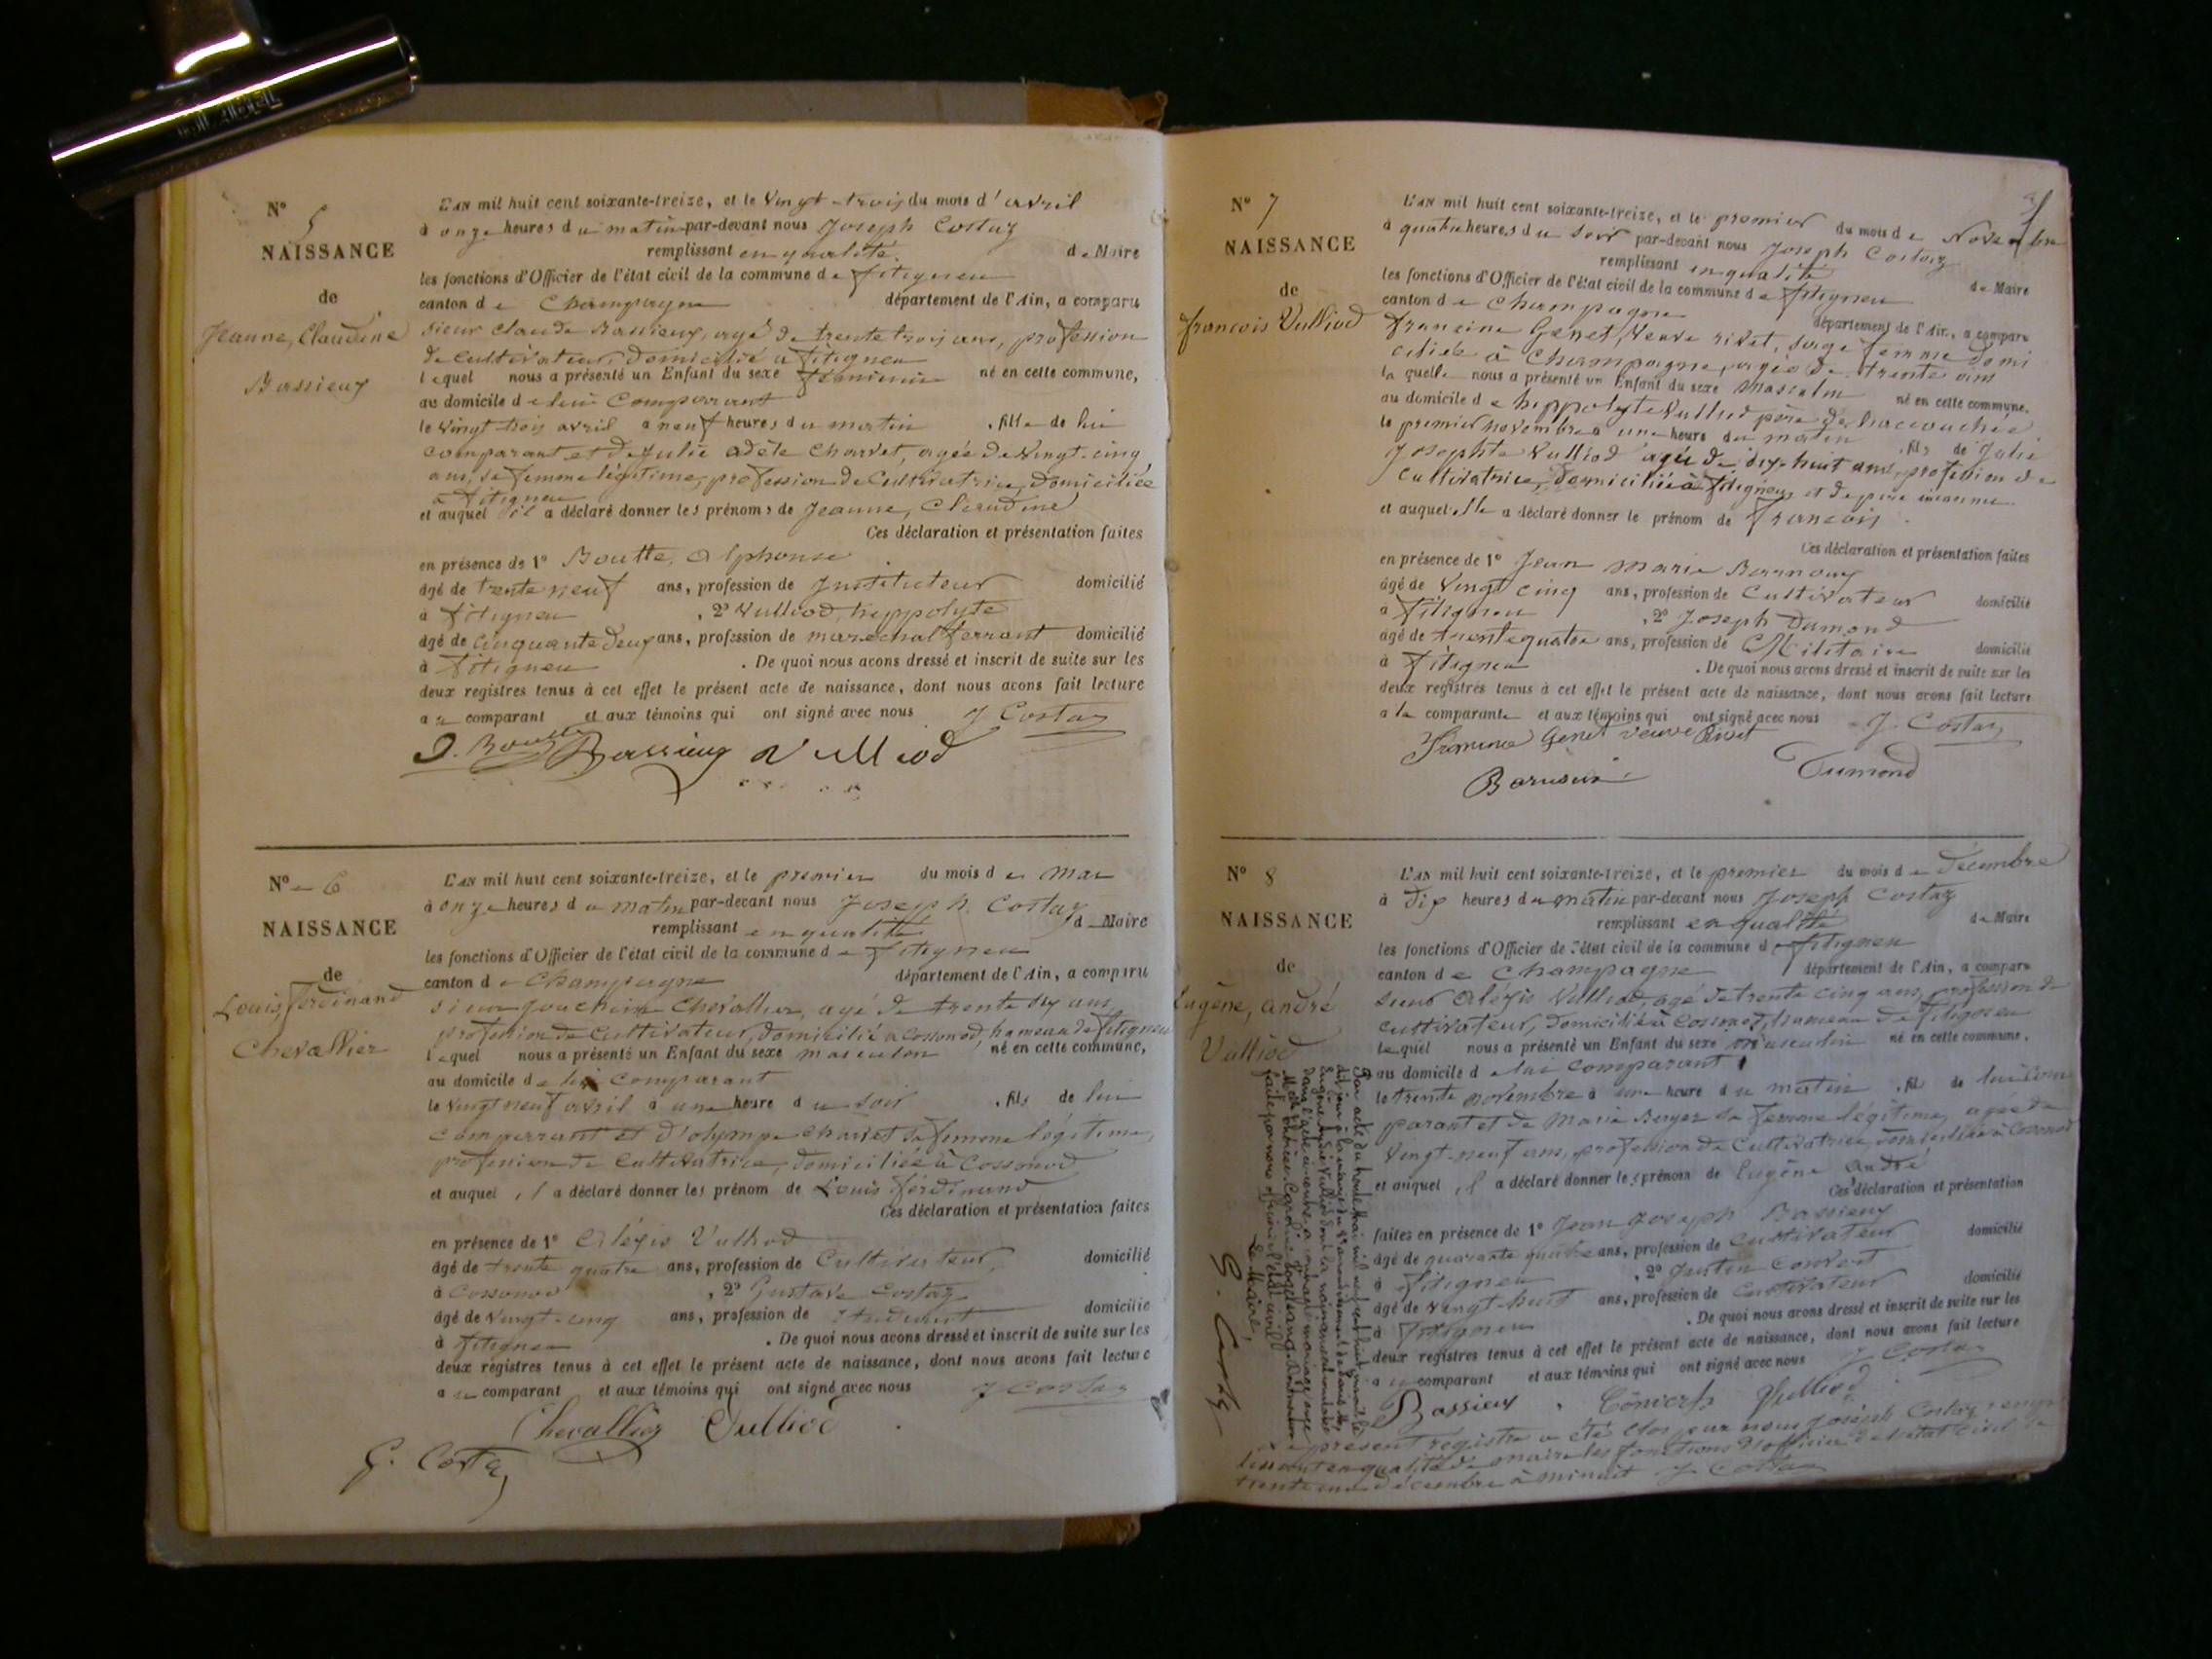 N° 5
NAISSANCE
de
Jeanne, Claudine
Bassieux
L'AN mil huit cent soixante-treize, et le Vingt-trois du mois d'avril
à onze heures du matin par-devant nous Joseph Costaz
remplissant en qualité de Maire
les fonctions d'Officier de l'état civil de la commune de fitignieu
canton de Champagne département de l'Ain, a comparu
sieur Claude Bassieux, agé de trente trois ans, profession
de cultivateur, domicilié a fitignieu
lequel nous a présenté un Enfant du sexe féminin né en cette commune,
au domicile de lui Comparant
le Vingt trois avril a neuf heures du matin . fille de lui
comparant et de Julie adèle Charvet, agée de Vingt-cinq
ans, sa femme légitime, profession de Cultivatrice, domiciliée
a fitignieu
et auquel il a déclaré donner les prénoms de Jeanne, Claudine
Ces déclaration et présentation faites
en présence de 1° Boutte, Alphonse
âgé de trente neuf ans, profession de Instituteur domicilié
à fitignieu , 2° Vulliod, hippolyte
âgé de Cinquante deux ans, profession de maréchal ferrant domicilié
à fitignieu . De quoi nous avons dressé et inscrit de suite sur les
deux registres tenus à cet effet le présent acte de naissance, dont nous avons fait lecture
au comparant et aux témoins qui ont signé avec nous J Costaz
Boutte Bassieux Vulliod
N° 6
NAISSANCE
de
Louis, ferdinand
Chevallier
L'AN mil huit cent soixante-treize, et le premier du mois de Mai
à onze heures du matin par-devant nous Joseph Costaz
remplissant en qualité de Maire
les fonctions d'Officier de l'état civil de la commune de fitignieu
canton de Champagne département de l'Ain, a comparu
sieur Joachim Chevallier, agé de trente six ans,
profession de Cultivateur, domicilié a Cossonod, hameau de fitignieu
lequel nous a présenté un Enfant du sexe masculin né en cette commune,
au domicile de lui Comparant
le vingt neuf avril à une heure du soir . fils de lui
comparant et d'olympe Charvet sa femme légitime,
profession de Cultivatrice, domiciliée à Cossonod
et auquel il a déclaré donner les prénom de Louis ferdinand
Ces déclaration et présentation faites
en présence de 1° Alexis Vulliod
âgé de trente quatre ans, profession de Cultivateur, domicilié
à Cossonod , 2° Gustave Costaz
âgé de Vingt-cinq ans, profession de étudiant domicilié
à fitignieu . De quoi nous avons dressé et inscrit de suite sur les
deux registres tenus à cet effet le présent acte de naissance, dont nous avons fait lecture
au comparant et aux témoins qui ont signé avec nous J Costaz
Chevallier Vulliod
G. Costaz
N° 7
NAISSANCE
de
francois Vulliod
L'AN mil huit cent soixante-treize, et le premier du mois de Novembre
à quatre heures du soir par-devant nous Joseph Costaz
remplissant en qualité de Maire
les fonctions d'Officier de l'état civil de la commune de fitignieu
canton de Champagne département de l'Ain, a comparu
francine Genet, Veuve rivet, sage femme domi
ciliée à Champagne, agée de trente ans
laquelle nous a présenté un Enfant du sexe Masculin né en cette commune,
au domicile de hippolyte Vulliod père de l'accouchée
le premier novembre a une heure du matin . fils de Julie
Josephte Vulliod agée de dix-huit ans, profession de
Cultivatrice, domiciliée à fitignieu et de père inconnu
et auquel elle a déclaré donner le prénom de francois
Ces déclaration et présentation faites
en présence de 1° Jean Marie
âgé de Vingt cinq ans, profession de Cultivateur domicilié
à fitignieu , 2° Joseph Dumond
âgé de trente quatre ans, profession de Militaire domicilié
à fitignieu . De quoi nous avons dressé et inscrit de suite sur les
deux registres tenus à cet effet le présent acte de naissance, dont nous avons fait lecture
a la comparante et aux témoins qui ont signé avec nous J. Costaz
francine Genet veuve Rivet
Dumond
N° 8
NAISSANCE
de
Eugène, andré
Vulliod
L'AN mil huit cent soixante-treize, et le premier du mois de Décembre
à Dix heures du matin par-devant nous Joseph Costaz
remplissant en qualité de Maire
les fonctions d'Officier de l'état civil de la commune de fitignieu
canton de Champagne département de l'Ain, a comparu
sieur Aléxis Vulliod, agé de trente cinq ans, profession de
cultivateur, domicilié à Cossonod, hameau de fitignieu
lequel nous a présenté un Enfant du sexe masculin né en cette commune,
au domicile de lui comparant
le trente novembre à une heure du matin . fils de lui com
parant et de Marie Berger sa femme légitime, agée de
Vingt-neuf ans, profession de Cultivatrice, domiciliée à Cossonod
et auquel il a déclaré donner les prénom de Eugène andré
Ces déclaration et présentation
faites en présence de 1° Jean Joseph Bassieux
âgé de quarante quatre ans, profession de Cultivateur domicilié
à fitignieu , 2° Justin Convert
âgé de vingt-huit ans, profession de Cultivateur domicilié
à fitignieu . De quoi nous avons dressé et inscrit de suite sur les
deux registres tenus à cet effet le présent acte de naissance, dont nous avons fait lecture
au comparant et aux témoins qui ont signé avec nous J Costaz
Bassieux Convert Vulliod
Le présent registre a été clos par nous Joseph Costaz remp
lissant en qualité de maire les fonctions d'officier de l'état civil le
trente un décembre à minuit J Costaz
Le Maire,
G. Costaz